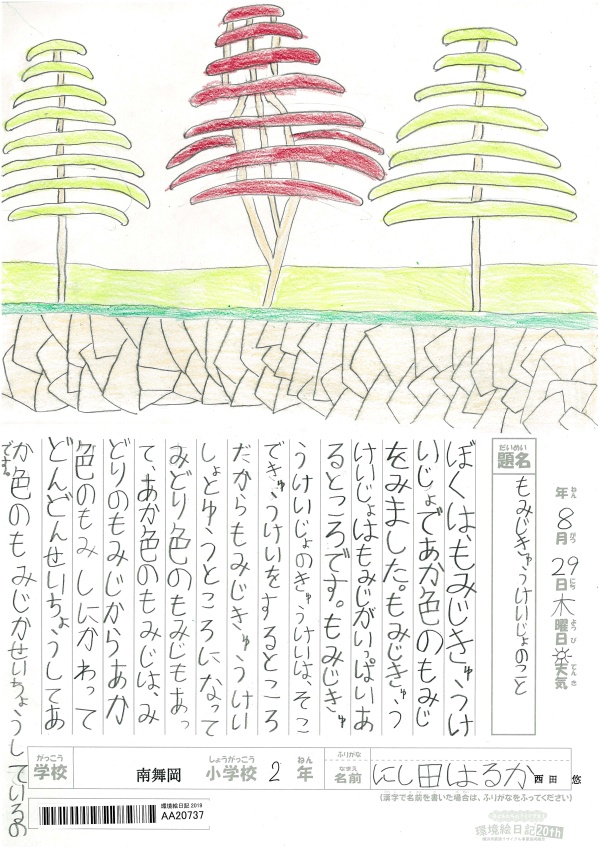 だいめい
題名
もみじきゅうけいじょのこと
年 ねん
8月 がつ
29日 にち
木曜日 ようび
天気 てんき
ぼくは、もみじきゅうけ
いじょであか色のもみじ
をみました。もみじきゅう
けいじょはもみじがいっぱいあ
るところです。もみじきゅ
うけいじょのきゅうけいは、そこ
できゅうけいをするところ
だからもみじきゅうけい
しょとゆうところになって
みどり色のもみじもあっ
て、あか色のもみじは、み
どりのもみじからあか
色のもみしにかわって
どんどんせいちょうしてあ
か色のもみじかせいちょうしているの
です。
がっこう
学校
南舞岡
しょうがっこう
小学校
2
ねん
年
ふりがな
なまえ
名前
にし田はるか
西田 悠
(漢字で名前を書いた場合は、ふりがなをふってください)
環境絵日記 2019
AA20737
環境絵日記20th